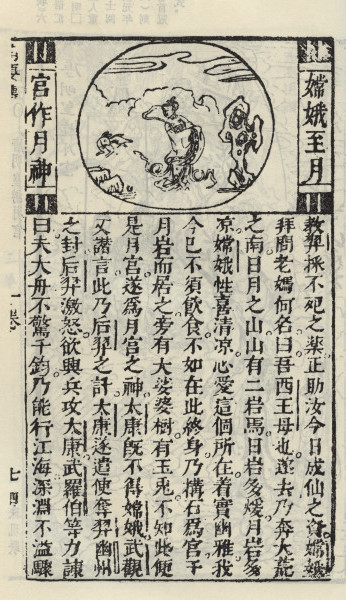 嫦娥至月
宮作月神
教羿採不死之藥正助汝今日成仙之資嫦娥
拜問老嫗何名曰吾西王母也遂去乃奔大荒
之南日月之山山有二岩焉日岩多煖月岩多
凉嫦娥性喜清凉心愛這個所在着實幽雅我
今巳不須飲食不如在此終身乃搆石爲宮于
月岩而居之旁有大娑婆樹有玉兎不知此便
是月宮遂爲月宮之神太康既不得嫦娥武觀
又譖言此乃后羿之計太康遂遣使奪羿幽州
之封后羿激怒欲興兵攻太康武羅伯等力諌
曰夫大舟不驚千鈞乃能行江海深淵不溢驟
一卷